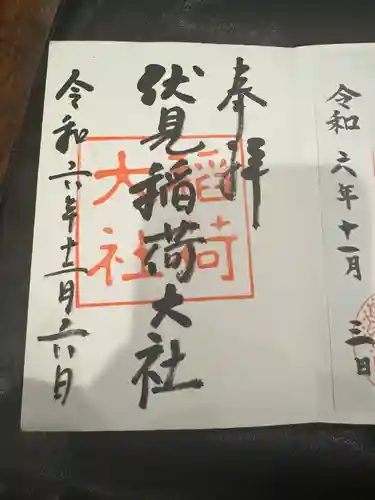 奉拝
伏見稲荷大社
令和六年十一月六日
稲荷
大社
令和六年十一月
三日